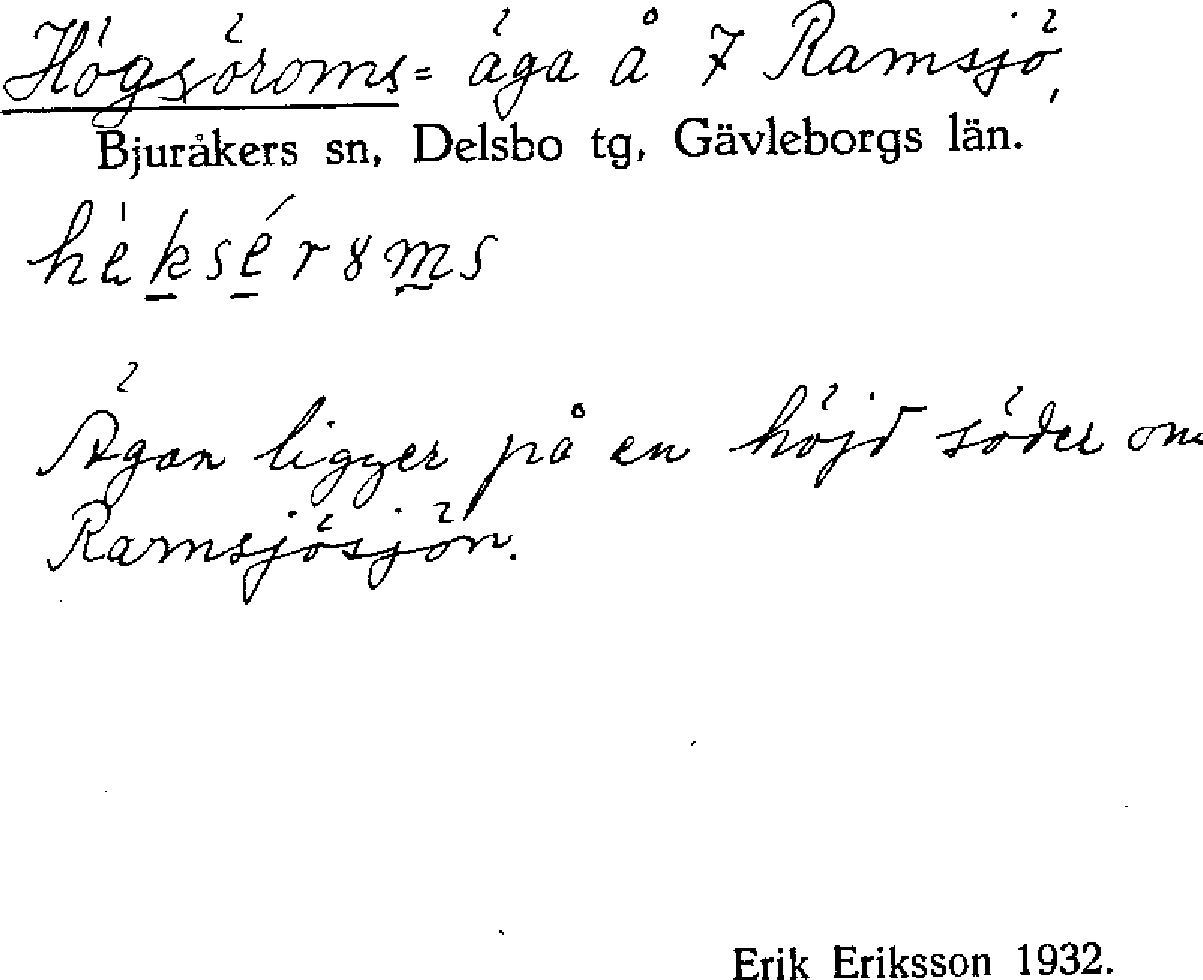 Högsöroms= äga å 7 Ramsjö,
Bjuråkers sn, Delsbo tg, Gävleborgs län.
Ägan ligger på en höjd söder om
Ramsjösjön.
Erik Eriksson 1932.